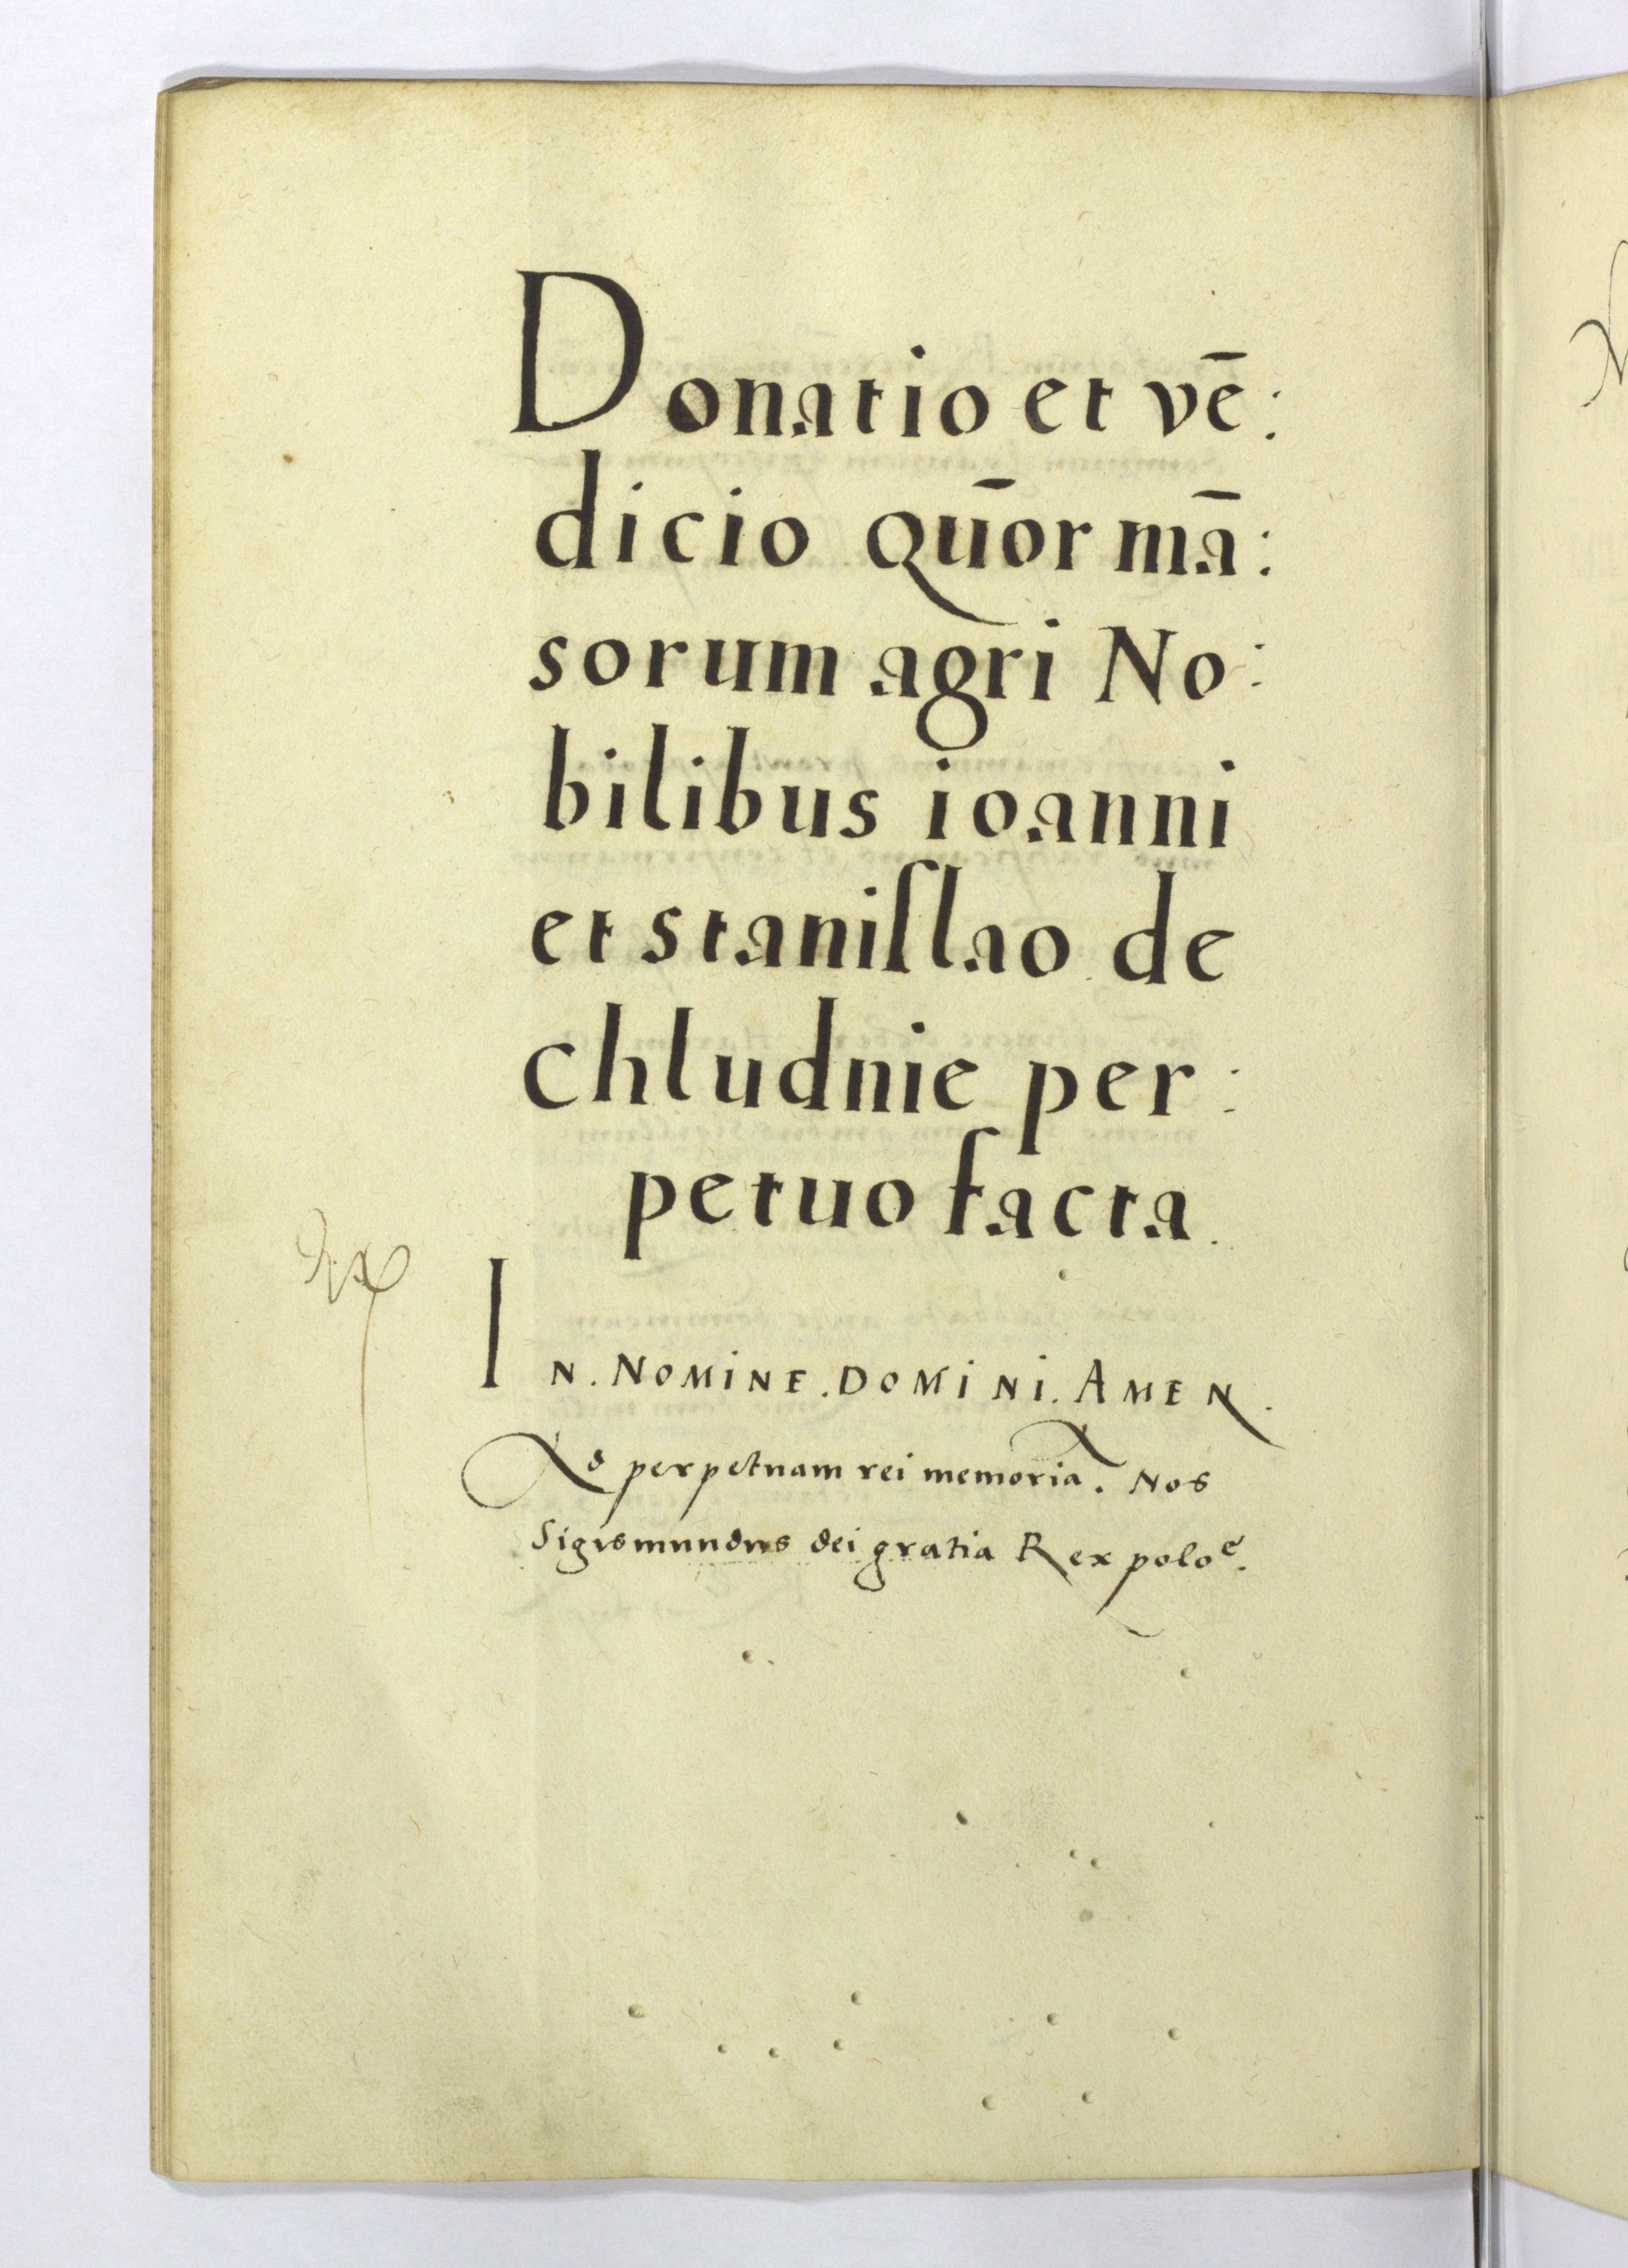 Donatio et vē:
dicio quōr mā:
sorum agri No:
bilibus ioanni
et staniſlao de
chludnie per:
petuo facta.
IN. NOMINE. DOMINI. AMEN.
Ad perpetuam rei memoriā. Nos
Sigismundus dei gratia Rex poloᵉ.